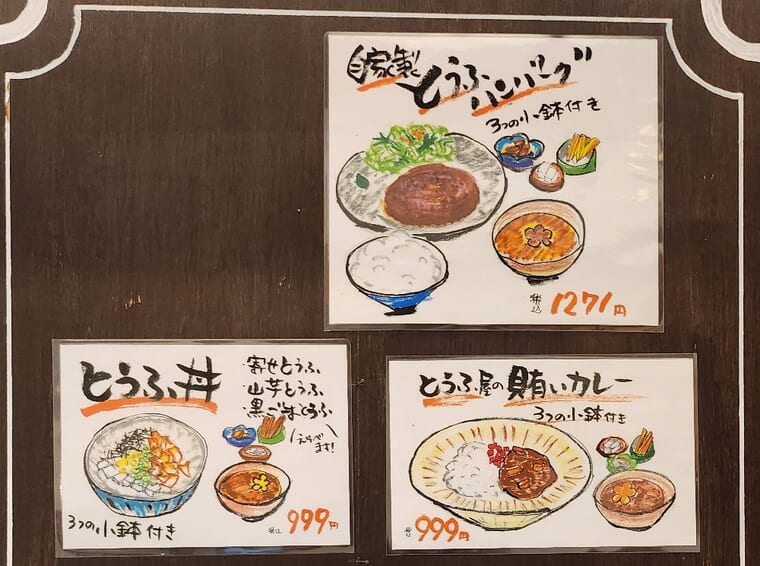 自家製
とうふハンバーグ
3つの小鉢付き
税込 1271円
とうふ丼
・寄せとうふ
・山芋とうふ
・黒ごまとうふ
えらべます!
3つの小鉢付き
税込 999円
とうふ屋の賄いカレー
3つの小鉢付き
税込 999円